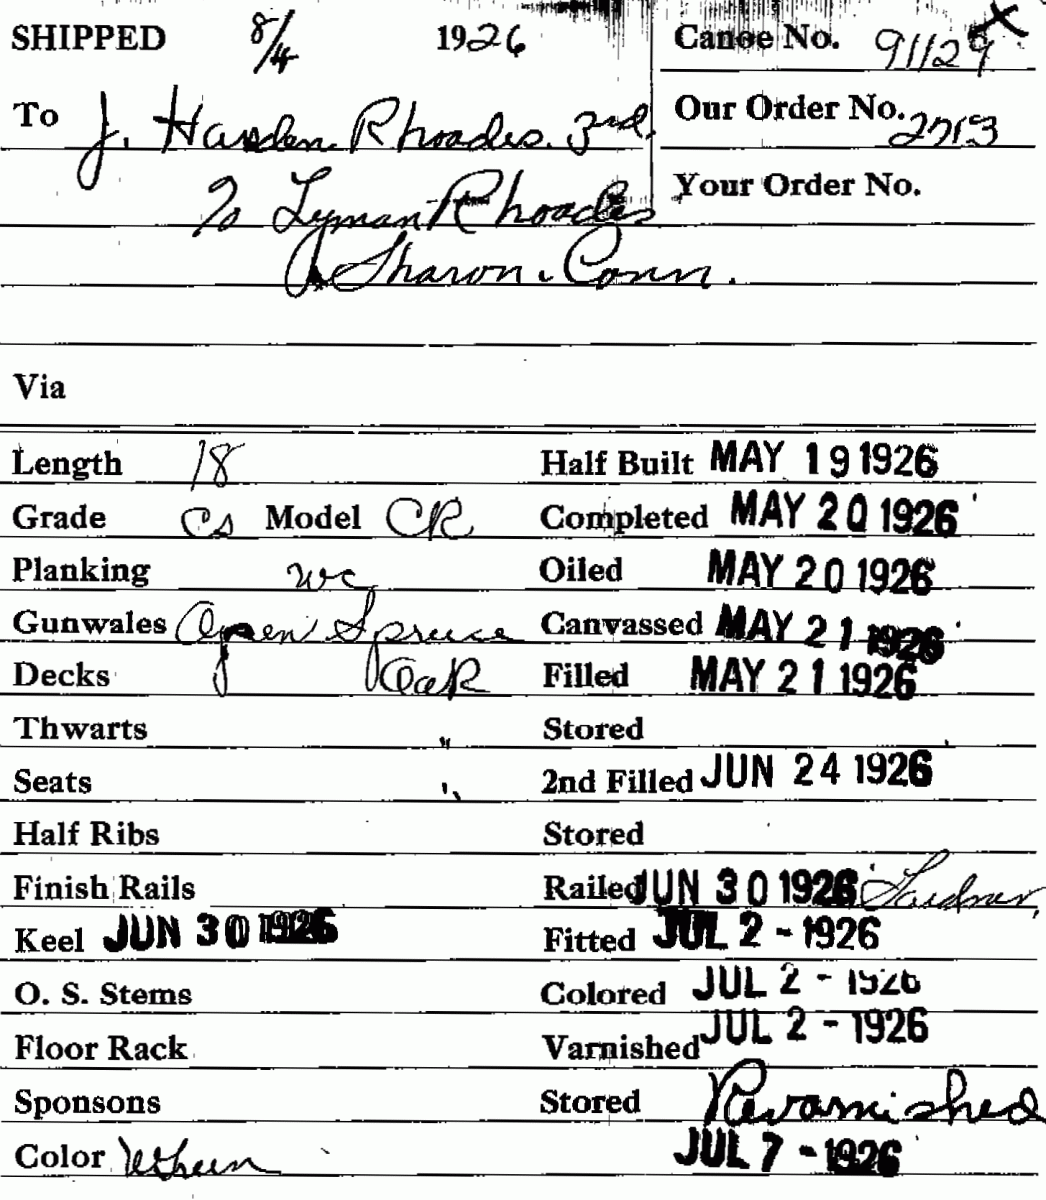 SHIPPED 8/4 1926 Canoe No. 91129
To J. Harsden Rhoades. 3rd. Our Order No. 2713
% Lyman Rhoades Your Order No.
Sharon. Conn.
Via
Length 18 Half Built MAY 19 1926
Grade CS Model CR Completed MAY 20 1926
Planking wc Oiled MAY 20 1926
Gunwales Open Spruce Canvassed MAY 21 1926
Decks Oak Filled MAY 21 1926
Thwarts " Stored
Seats " 2nd Filled JUN 24 1926
Half Ribs Stored
Finish Rails Railed JUN 30 1926 Gardner,
Keel JUN 30 1926 Fitted JUL 2 - 1926
O. S. Stems Colored JUL 2 - 1926
Floor Rack Varnished JUL 2 - 1926
Sponsons Stored Revarnished
Color JUL 7 - 1926